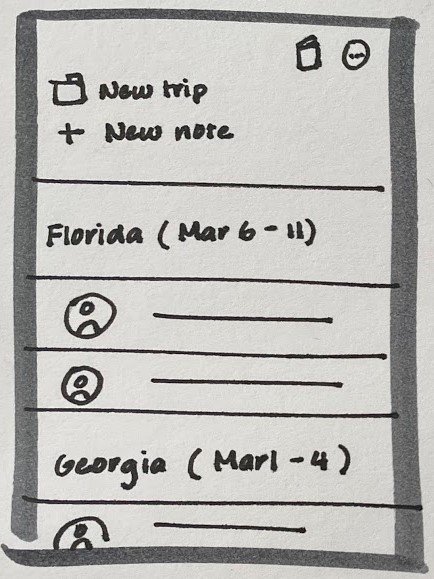 New trip
+ New note
Florida (Mar 6 - 11)
Georgia (Mar 1 - 4)